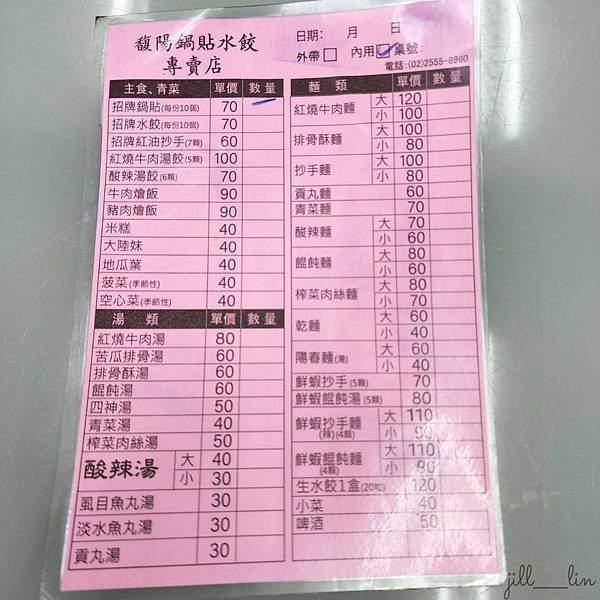 馥陽鍋貼水餃
專賣店
日期： 月 日
外帶□ 內用☑桌號：
電話：(02)2555-8960
主食、青菜 單價 數量
招牌鍋貼(每份10個) 70
招牌水餃(每份10個) 70
招牌紅油抄手(7顆) 60
紅燒牛肉湯餃(5顆) 100
酸辣湯餃(6顆) 70
牛肉燴飯 90
豬肉燴飯 90
米糕 40
大陸妹 40
地瓜葉 40
菠菜(季節性) 40
空心菜(季節性) 40
湯 類 單價 數量
紅燒牛肉湯 80
苦瓜排骨湯 60
排骨酥湯 60
餛飩湯 60
四神湯 50
青菜湯 40
榨菜肉絲湯 50
酸辣湯 大 40
小 30
虱目魚丸湯 30
淡水魚丸湯 30
貢丸湯 30
麵 類 單價 數量
紅燒牛肉麵 大 120
小 100
排骨酥麵 大 100
小 80
抄手麵 大 100
小 80
貢丸麵 60
青菜麵 60
酸辣麵 大 70
小 60
餛飩麵 大 80
小 60
榨菜肉絲麵 大 80
小 70
乾麵 大 60
小 40
陽春麵(湯) 大 60
小 40
鮮蝦抄手(5顆) 70
鮮蝦餛飩湯(5顆) 80
鮮蝦抄手麵 大 110
(辣)(4顆) 小 90
鮮蝦餛飩麵 大 110
(4顆) 小 90
生水餃1盒(20粒) 120
小菜 40
啤酒 50
jill___lin